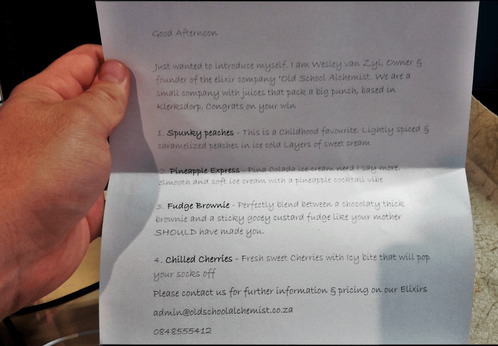 Good Afternoon
Just wanted to introduce myself. I am Wesley van Zyl, Owner &
founder of the elixir company 'Old School Alchemist'. We are a
small company with juices that pack a big punch, based in
Klerksdorp. Congrats on your win
1. Spunky peaches - This is a Childhood favourite. Lightly spiced &
caramelized peaches in ice cold Layers of sweet cream
2. Pineapple Express - Pina Colada ice cream need I say more.
Smooth and soft ice cream with a pineapple cocktail vibe
3. Fudge Brownie - Perfectly blend between a chocolaty thick
brownie and a sticky gooey custard fudge like your mother
SHOULD have made you.
4. Chilled Cherries - Fresh sweet Cherries with Icy bite that will pop
your socks off
Please contact us for further information & pricing on our Elixirs
admin@oldschoolalchemist.co.za
0848555412